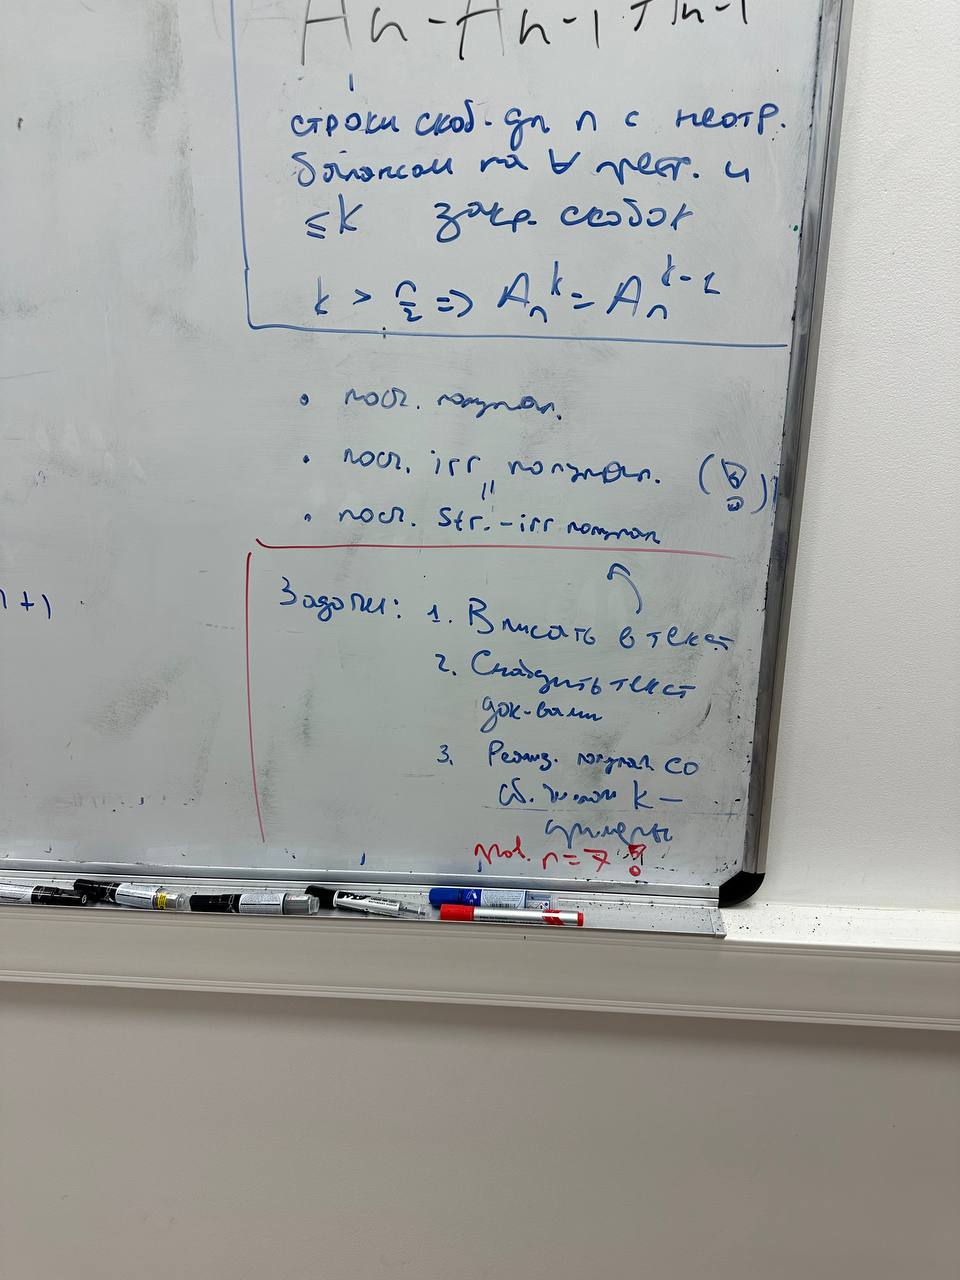 Aₙ - Aₙ₋₁ + Aₙ₋₁
строки скоб. дл n с неотр.
балансом на ∀ преф. и
≤k закр. скобок
k > n/2 => Aₙᵏ = Aₙᵏ⁻¹
• посл. полупол.
• посл. irr полупол. (!?)
=
• посл. str.-irr полупол
n+1
Задачи: 1. Вписать в текст
2. Снабдить текст
док-вами
3. Реализ. полупол со
k –
примеры
n=7 !